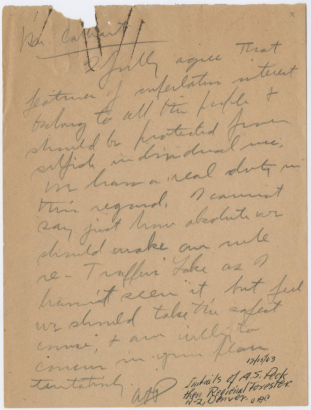 Mr. Carhart
I fully agree that
features of superlative interest
belong to all the people &
should be protected from
selfish individual use.
We have a real duty in
this regard. I cannot
say just how absolute we
should make our rule
re - Trappers Lake as I
haven't seen it but feel
we should take the safest
course, & am willing to
concur in your plan
tentatively
ASP
12/13/63
Initials of A.S. Peck
then Regional Forester
R-2 Denver